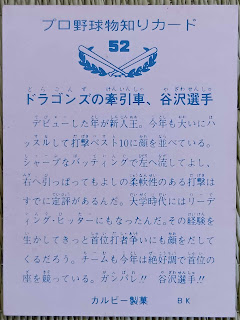 プロ野球物知りカード
52
ドラゴンズの牽引車、谷沢選手
デビューした年が新人王。今年も大いにハ
ッスルして打撃ベスト10に顔を並べている。
シャープなバッティングで左へ流してよし、
右へ引っぱってもよしの柔軟性のある打撃は
すでに定評があるんだ。大学時代にはリーデ
ィング・ヒッターにもなったんだ。その経験を
生かしてきっと首位打者争いにも顔をだして
くるだろう。チームも今年は絶好調で首位の
座を競っている。ガンバレ!! 谷沢選手!!
カルビー製菓 BK